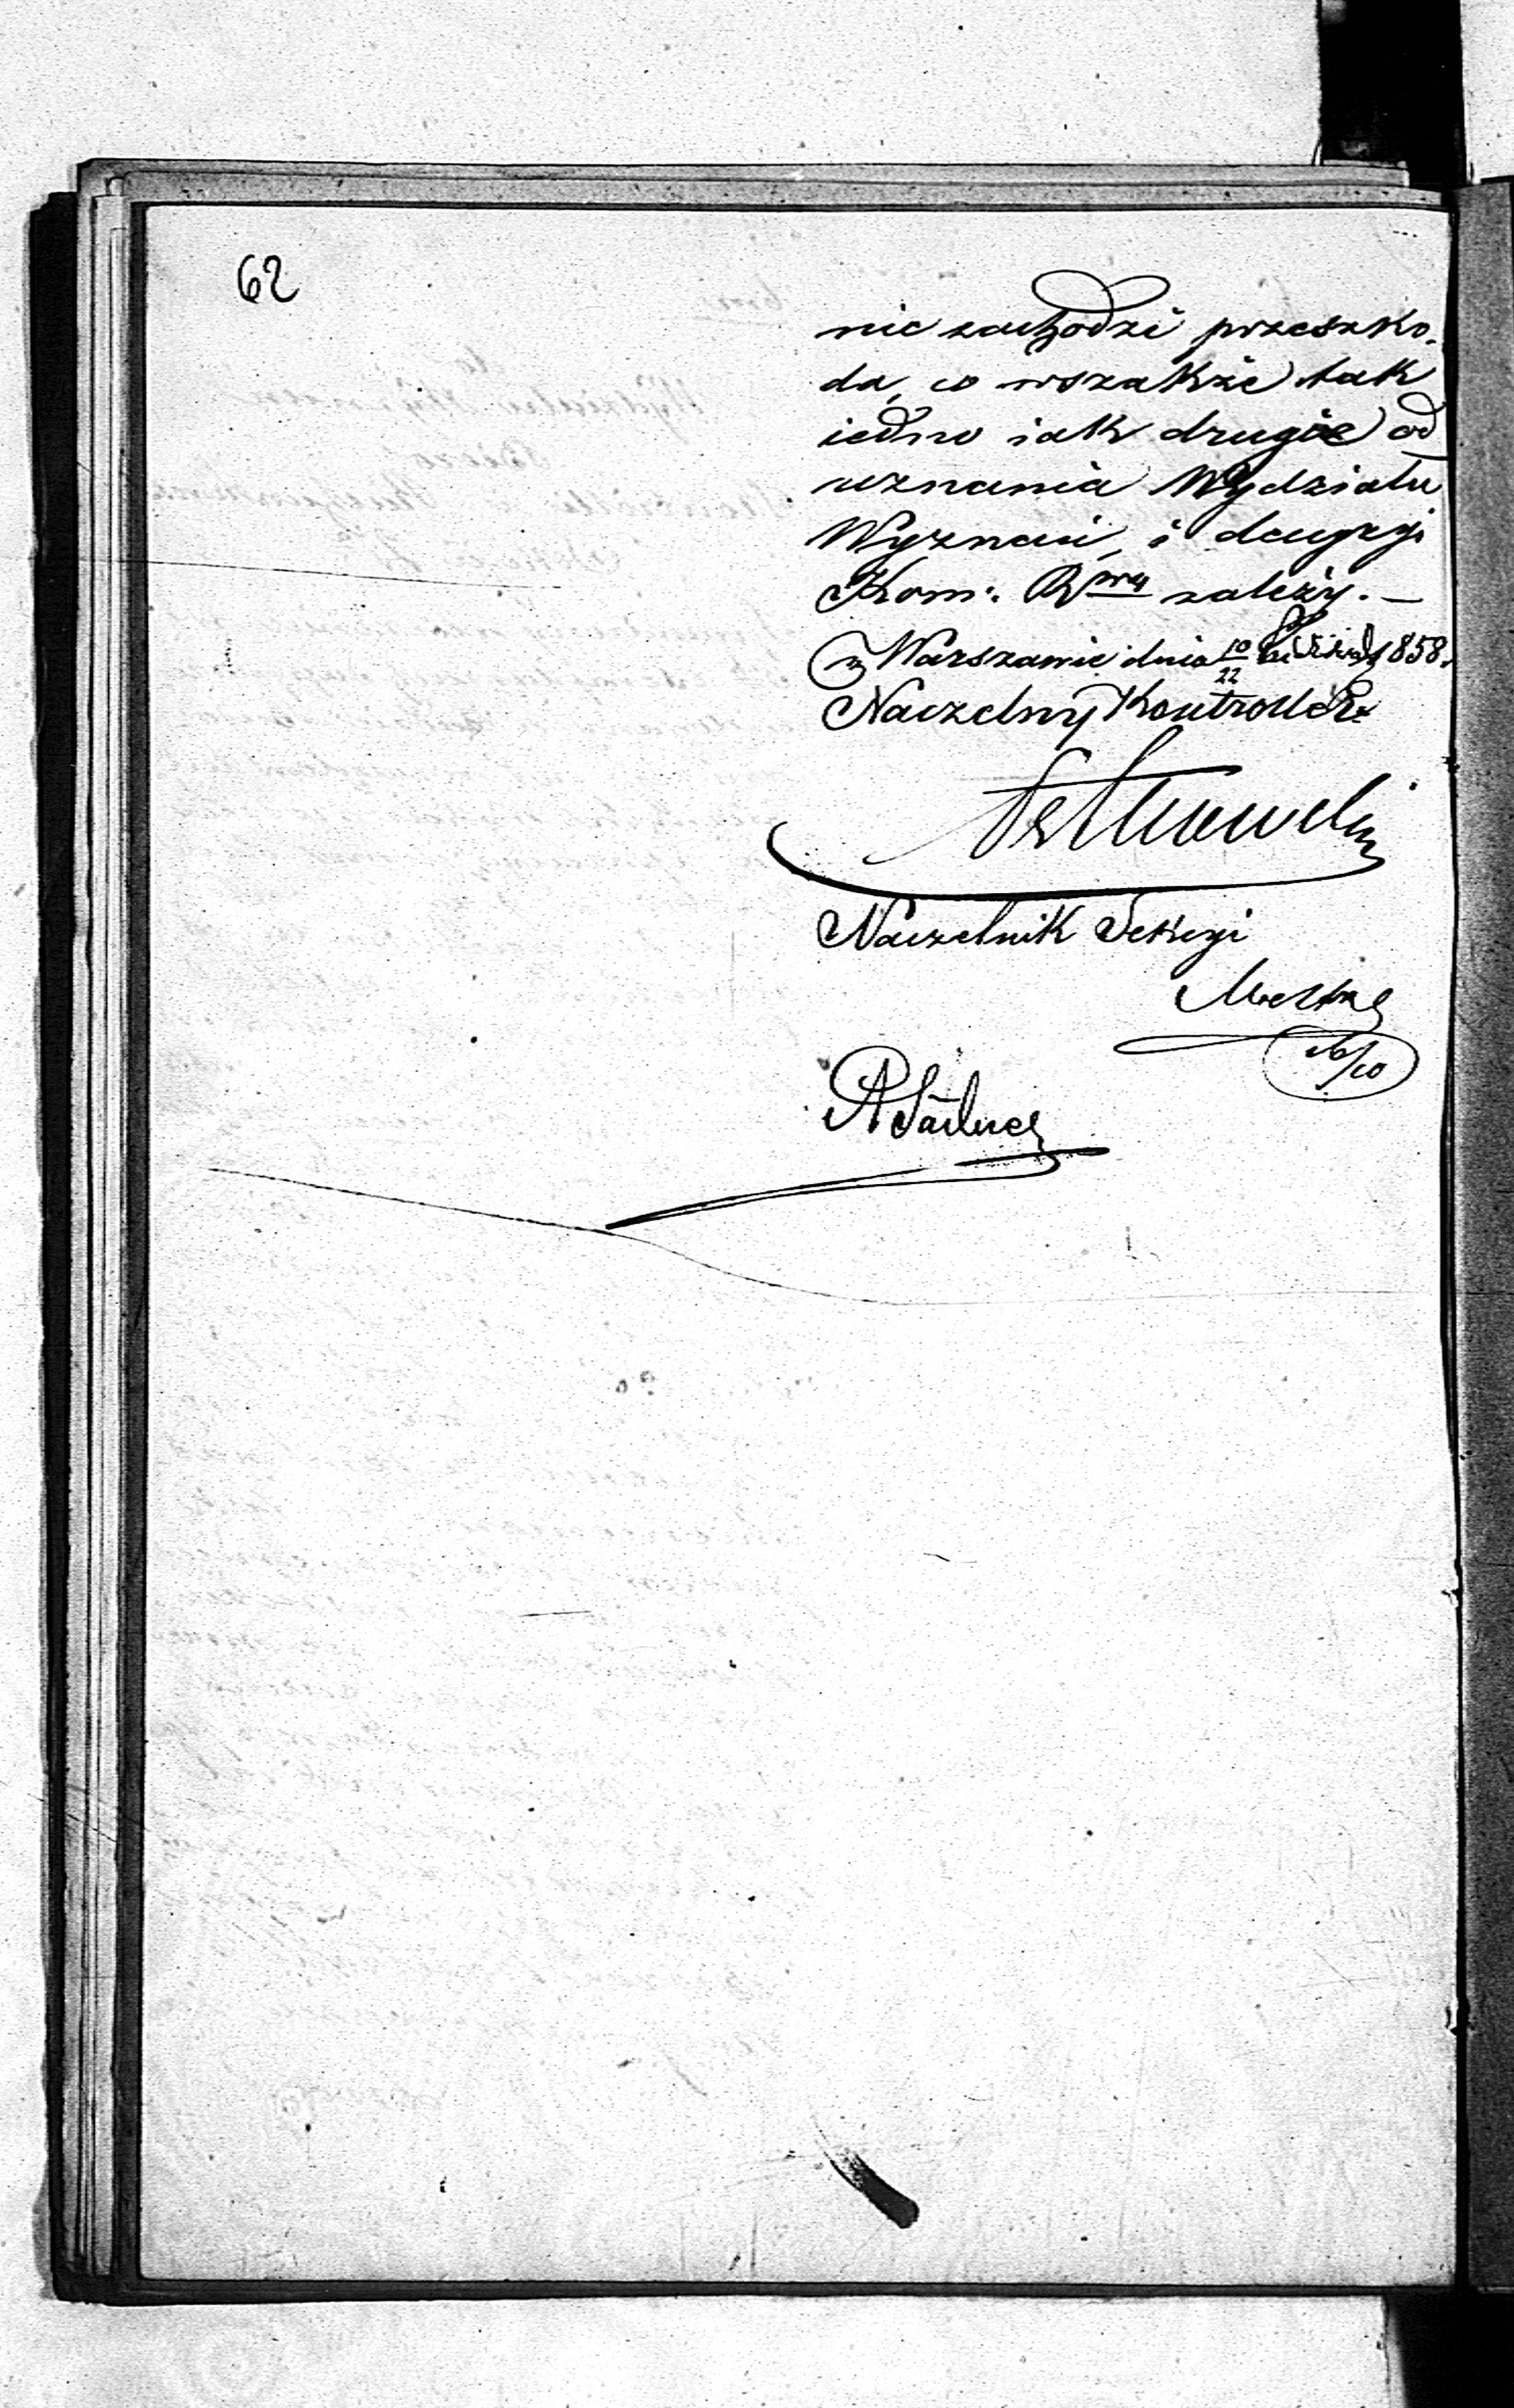 62
nie zachodzi przeszko-
da, co wszakże tak
iedno iak drugie od
uznania Wydziału
Wyznań, i decyzyi
Kom: R<sup>wey</sup> zależy. —
w Warszawie dnia 10/22 1858.
Naczelny Kontroller
Naczelnik Sekcyi